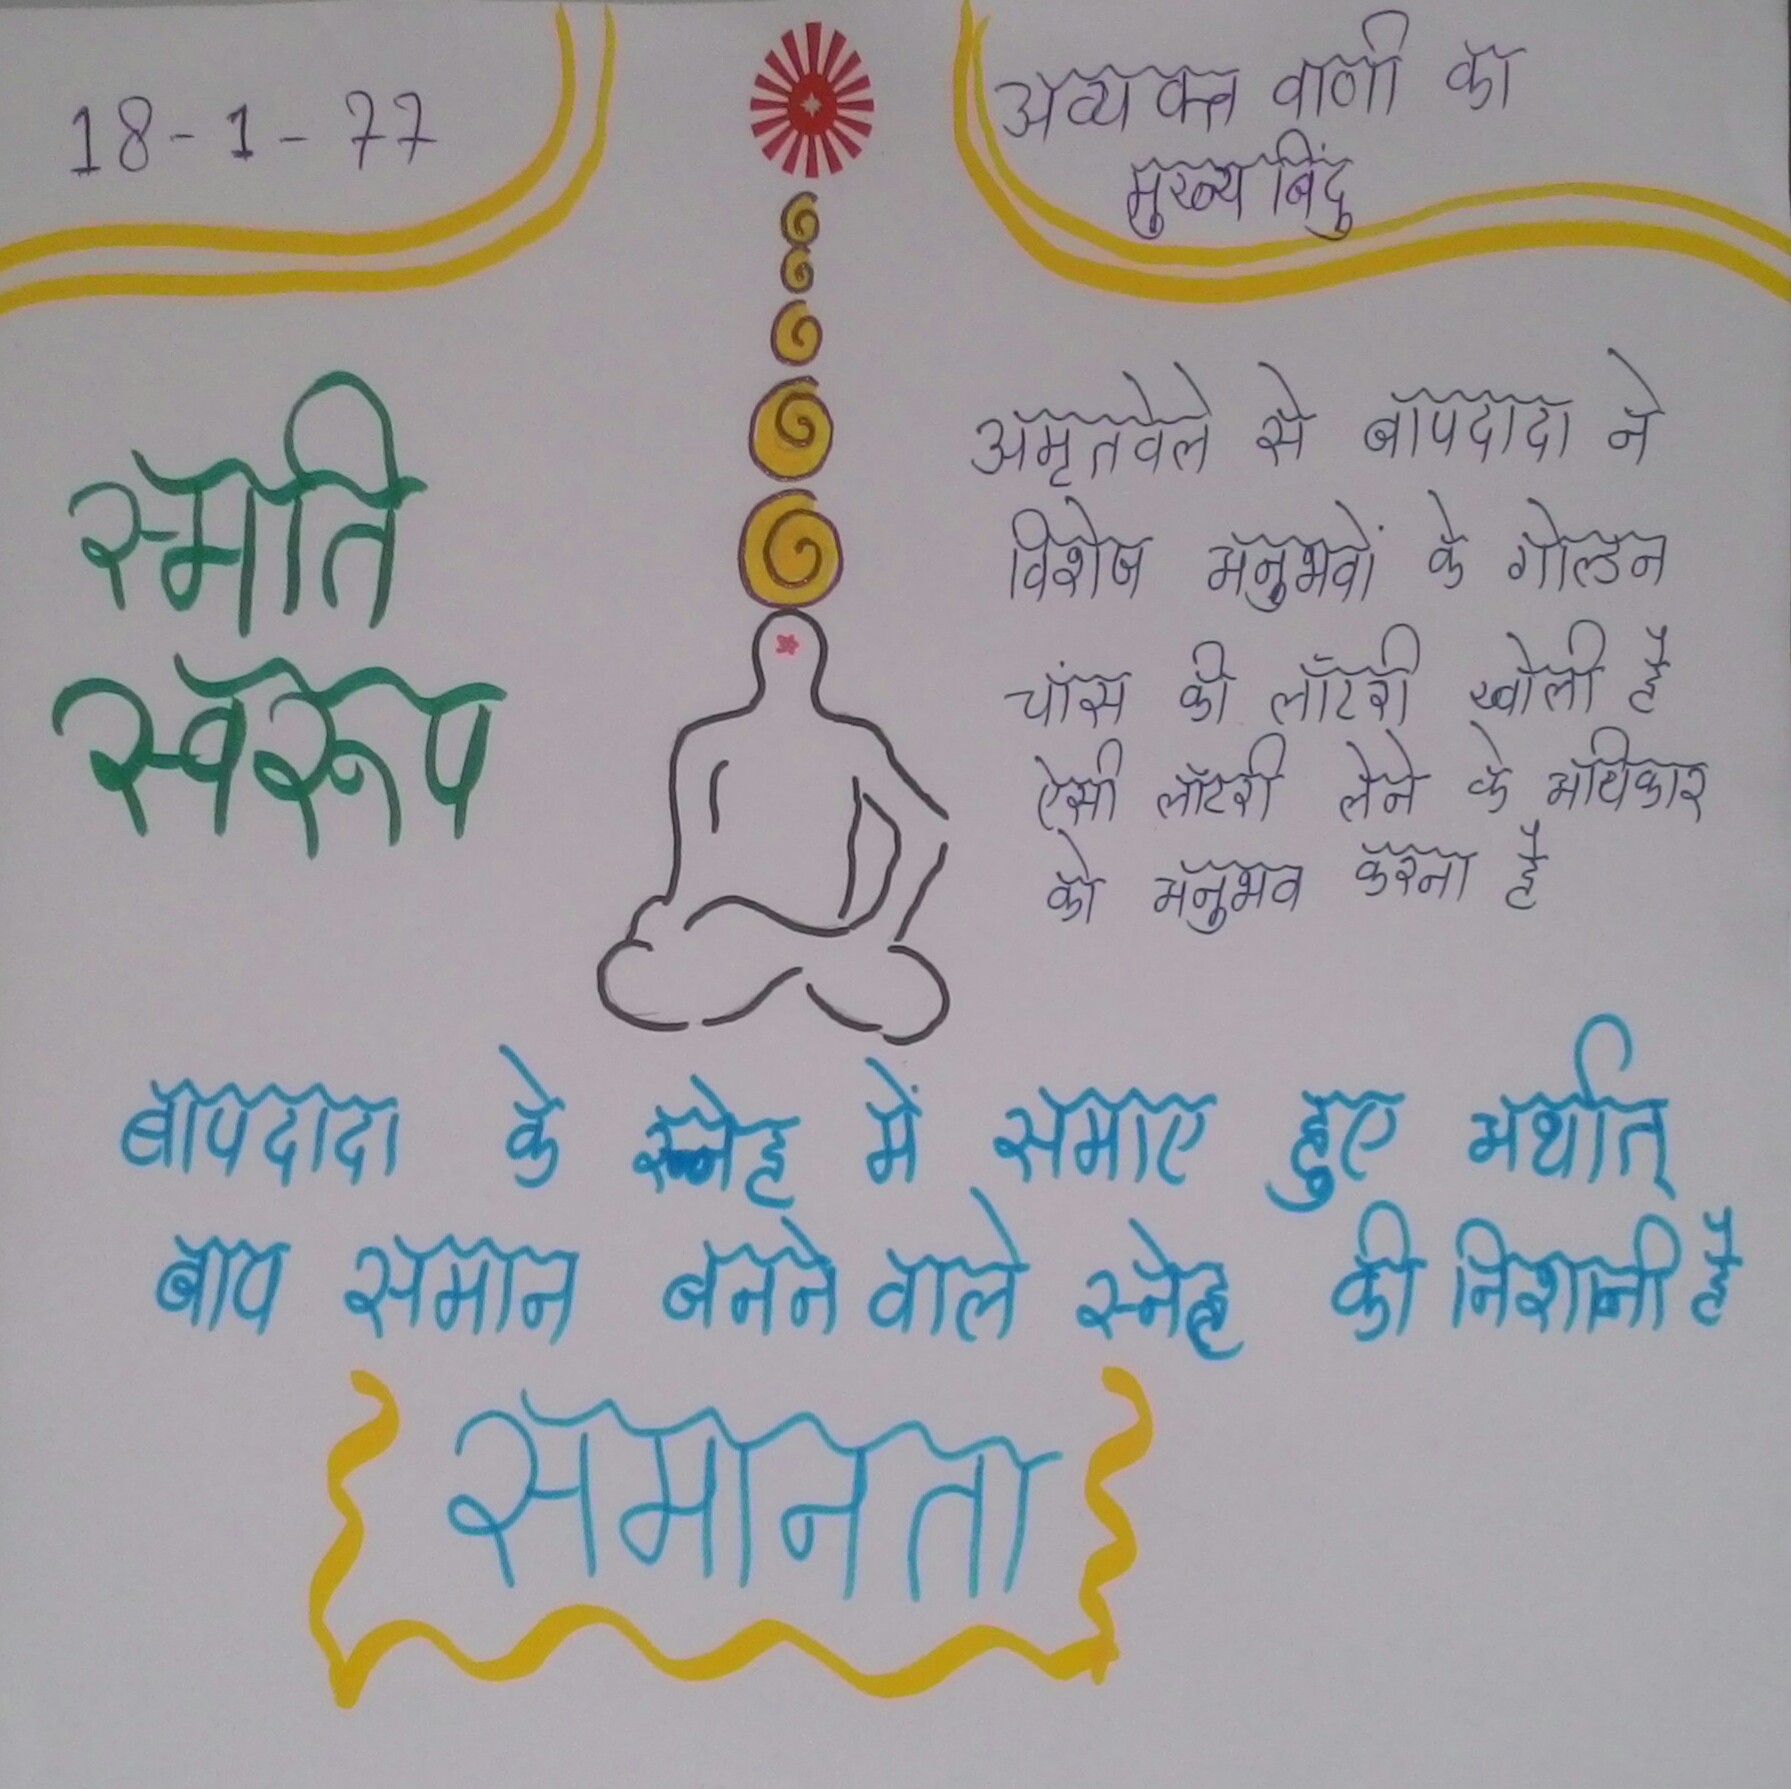 18-1-77
अव्यक्त वाणी का
मुख्य बिंदु
स्मति
स्वरूप
अमृतवेले से बापदादा ने
विशेष अनुभवों के गोल्डन
चांस की लॉटरी खोली है
ऐसी लॉटरी लेने के अधिकार
को अनुभव करना है
बापदादा के स्नेह में समाए हुए अर्थात्
बाप समान बनने वाले स्नेह की निशानी है
समानता